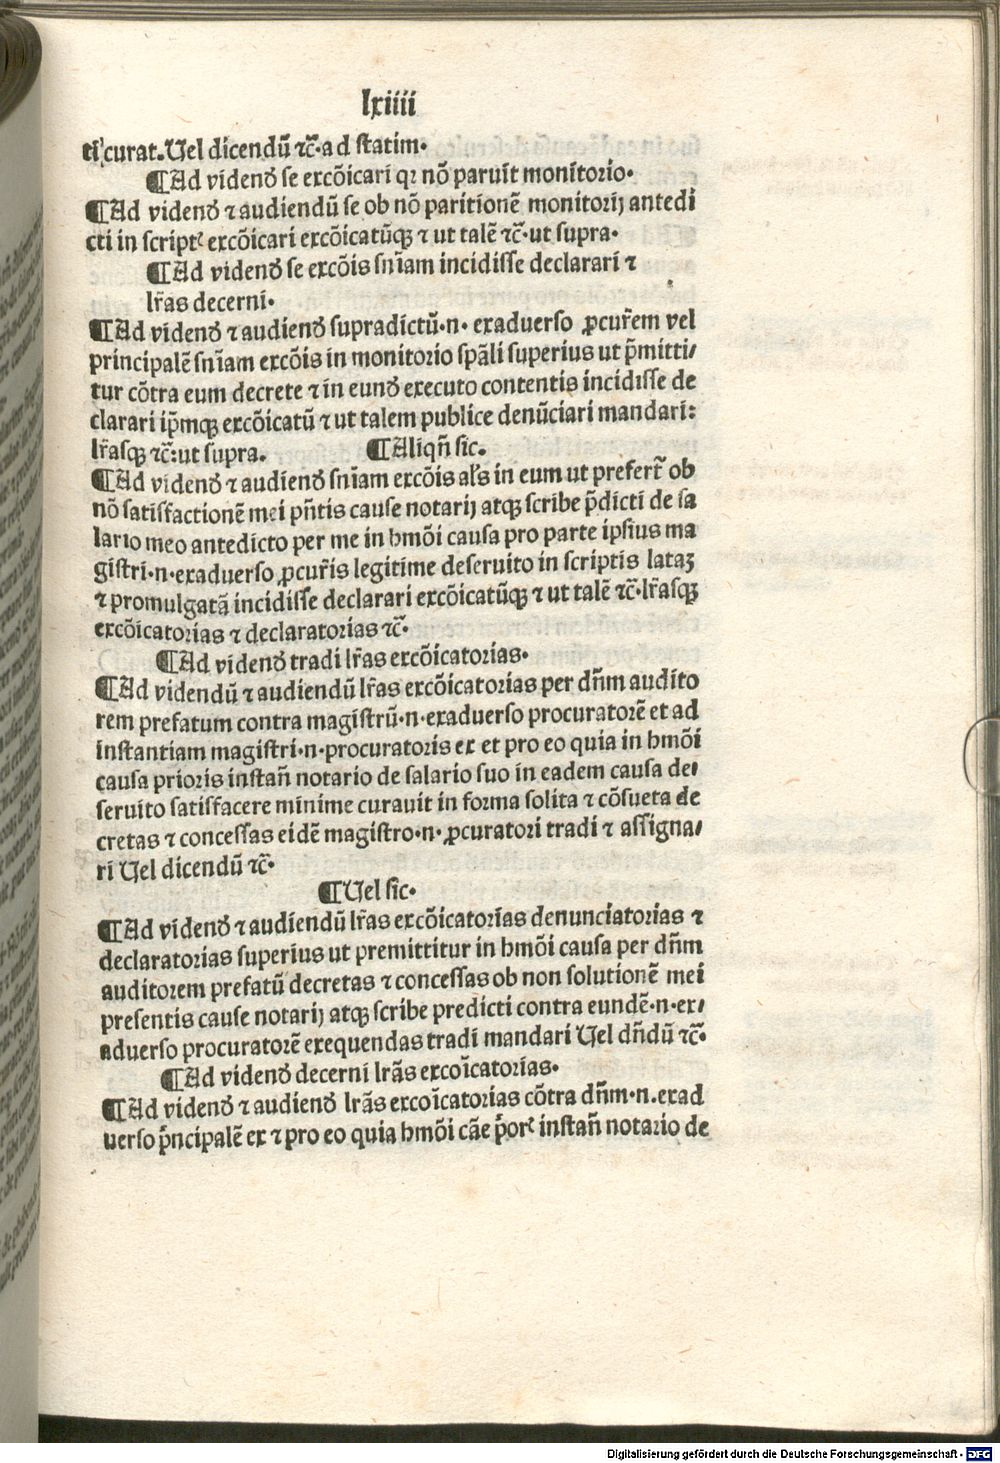 lxiiii
ti curat. Uel dicendū ⁊c̄· ad statim·
¶Ad videnđ se excōicari qꝛ nō paruit monitorio·
¶Ad videnđ ⁊ audiendū se ob nō paritionē monitorij antedi
cti in script᷒ excōicari excōicatūqꝫ ⁊ ut talē ⁊c̄· ut supra·
¶Ad videnđ se excōis snīam incidisse declarari ⁊
lr̄as decerni·
¶Ad videnđ ⁊ audienđ supradictū·n· exaduerso ꝓcur̄em vel
principalē snīam excōis in monitorio spāli superius ut p̄mitti⸗
tur cōtra eum decrete ⁊ in eunđ executo contentis incidisse de
clarari ip̄mqꝫ excōicatū ⁊ ut talem publice denūciari mandari:
lr̄asqꝫ ⁊c̄: ut supra. ¶Aliqn̄ sic.
¶Ad videnđ ⁊ audienđ snīam excōis al's in eum ut prefert̄ ob
nō satisfactionē mei pn̄tis cause notarij atqꝫ scribe p̄dicti de sa
lario meo antedicto per me in hmōi causa pro parte ipsius ma
gistri·n·exaduerso ꝓcur̄is legitime deseruito in scriptis lataꝫ
⁊ promulgatā incidisse declarari excōicatūqꝫ ⁊ ut talē ⁊c̄· lr̄asqꝫ
excōicatorias ⁊ declaratorias ⁊c̄·
¶Ad videnđ tradi lr̄as excōicatorias·
¶Ad videndū ⁊ audiendū lr̄as excōicatorias per dn̄m audito
rem prefatum contra magistrū·n·exaduerso procuratorē et ad
instantiam magistri·n·procuratoris ex et pro eo quia in hmōi
causa prioris instan̄ notario de salario suo in eadem causa de⸗
seruito satisfacere minime curauit in forma solita ⁊ cōsueta de
cretas ⁊ concessas eidē magistro·n· ꝓcuratori tradi ⁊ assigna⸗
ri Uel dicendū ⁊c̄·
¶Uel sic·
¶Ad videnđ ⁊ audiendū lr̄as excōicatorias denunciatorias ⁊
declaratorias superius ut premittitur in hmōi causa per dn̄m
auditorem prefatū decretas ⁊ concessas ob non solutionē mei
presentis cause notarij atqꝫ scribe predicti contra eundē·n·ex⸗
aduerso procuratorē exequendas tradi mandari Uel dn̄dū ⁊c̄·
¶Ad videnđ decerni lrās excoīcatorias·
¶Ad videnđ ⁊ audienđ lrās excoīcatorias cōtra dn̄m·n.exad
uerso p̄ncipalē ex ⁊ pro eo quia hmōi cāe p̄or᷒ instan̄ notario de
Digitalisierung gefördert durch die Deutsche Forschungsgemeinschaft - DFG